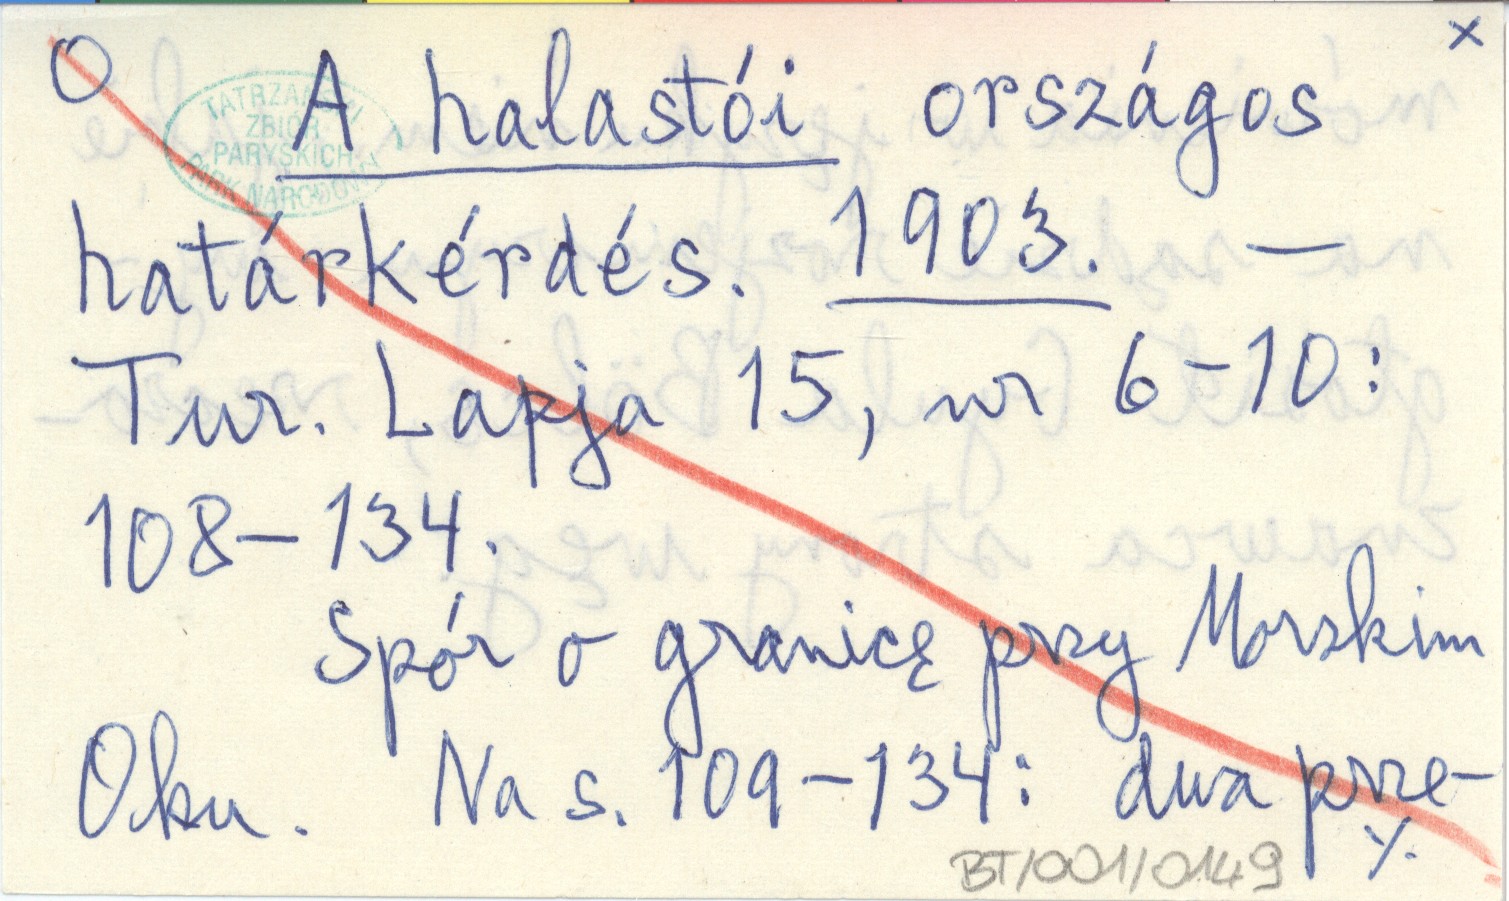 O
x
TATRZAŃSKI
ZBIÓR
PARYSKICH
PARK NARODOWY
A halastói országos
határkérdés. 1903. —
Tur. Lapja 15, nr 6-10:
108-134.
Spór o granicę przy Morskim
Oku. Na s. 109-134: dwa prze-
BT/001/0149